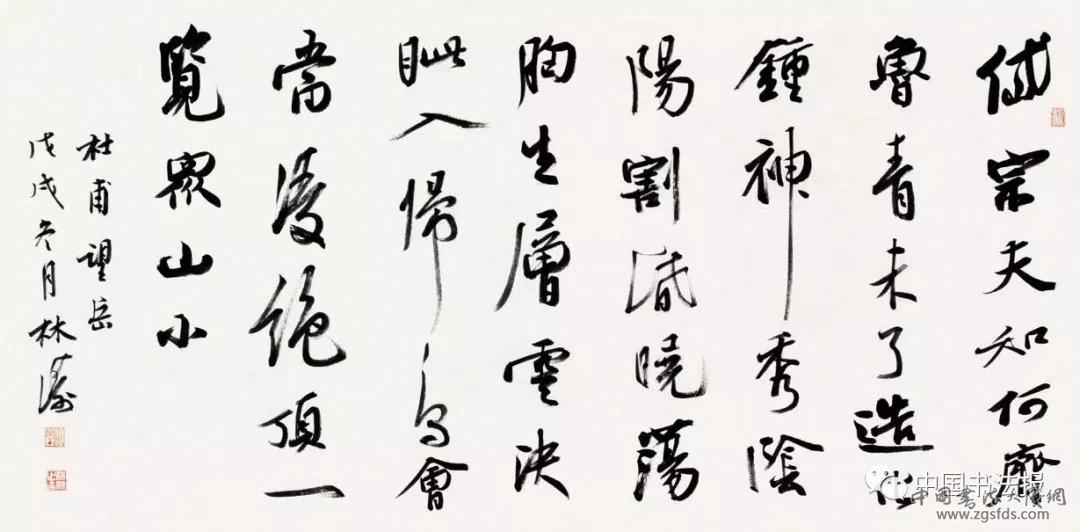 岱宗夫如何齊
魯青未了造化
鍾神秀陰
陽割昏曉蕩
胸生層雲決
眥入歸鳥會
當凌絕頂一
覽眾山小
杜甫望岳
戊戌冬月林
中国书法报
www.zgsfds.com